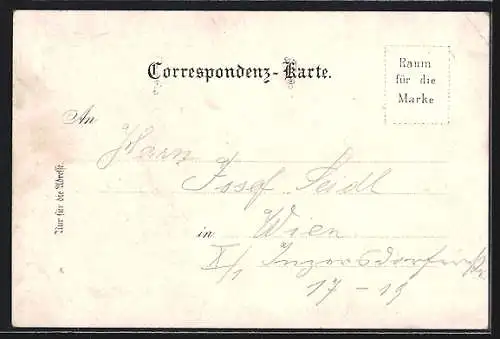 Correspondenz-Karte.
Raum
für die
Marke
An
Herrn
Josef Seidl
in Wien
X/1 Inzersdorferstr
17-19
Nur für die Adresse.